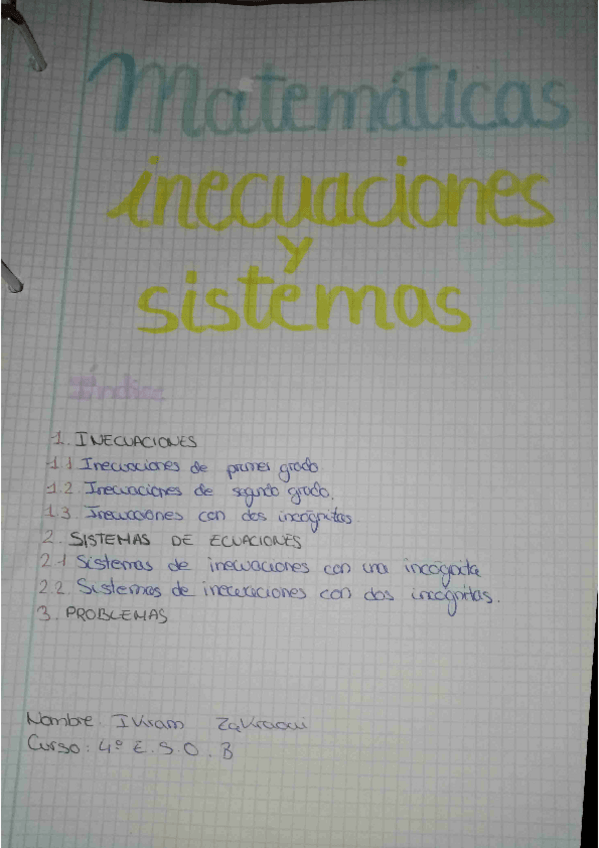 Matemáticas
inecuaciones
y
sistemas
Índice
1. INECUACIONES
1.1 Inecuaciones de primer grado
1.2. Inecuaciones de segundo grado.
1.3. Inecuaciones con dos incógnitas
2. SISTEMAS DE ECUACIONES
2.1 Sistemas de inecuaciones con una incógnita
2.2. Sistemas de inecuaciones con dos incógnitas.
3. PROBLEMAS
Nombre:
Curso: 4º E.S.O. B